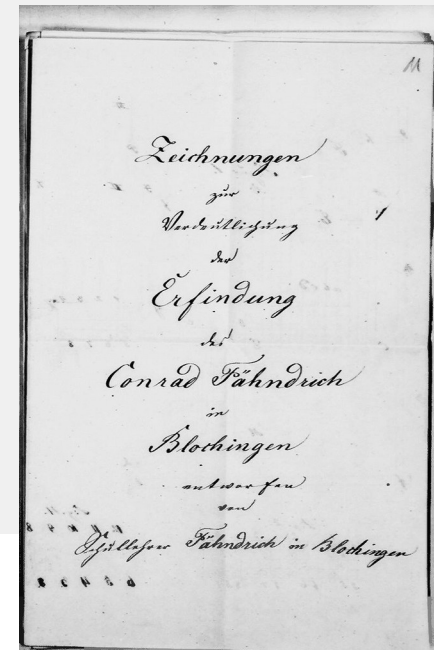 Zeichnungen
zur
Verdeutlichung
der
Erfindung
des
Conrad Fähndrich
in
Blochingen
entworfen
von
Schullehrer Fähndrich in Blochingen